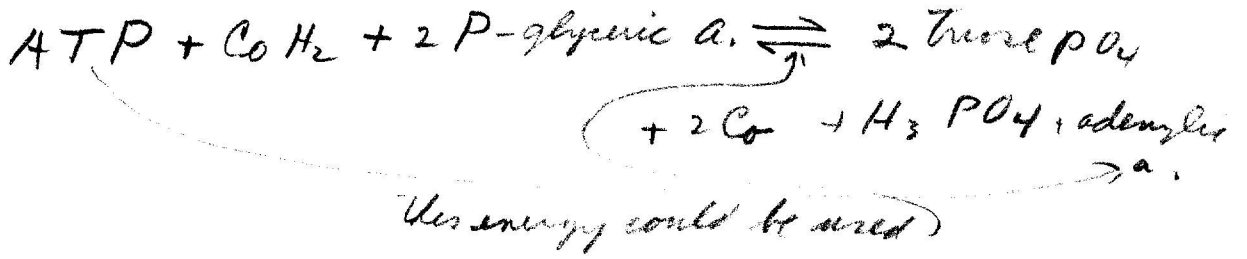 ATP + CoH₂ + 2 P-glyceric a. ⇌ 2 Triose PO₄
+ 2 Co + H₃PO₄ + adenylic
a.
This energy could be used